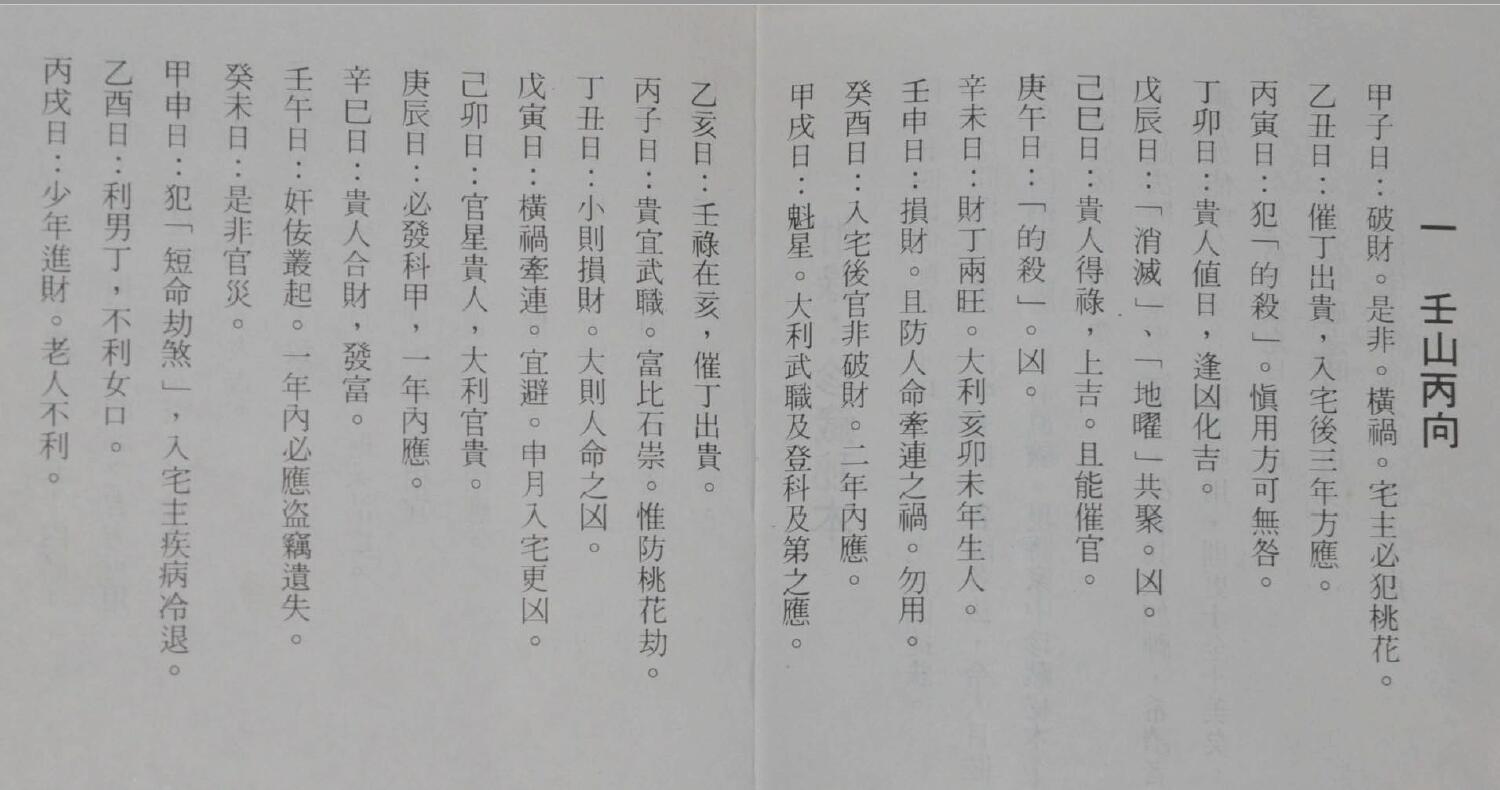 一　壬山丙向
甲子日：破財。是非。橫禍。宅主必犯桃花。
乙丑日：催丁出貴，入宅後三年方應。
丙寅日：犯「的殺」。慎用方可無咎。
丁卯日：貴人值日，逢凶化吉。
戊辰日：「消滅」、「地曜」共聚。凶。
己巳日：貴人得祿，上吉。且能催官。
庚午日：「的殺」。凶。
辛未日：財丁兩旺。大利亥卯未年生人。
壬申日：損財。且防人命牽連之禍。勿用。
癸酉日：入宅後官非破財。二年內應。
甲戌日：魁星。大利武職及登科及第之應。
乙亥日：壬祿在亥，催丁出貴。
丙子日：貴宜武職。富比石崇。惟防桃花劫。
丁丑日：小則損財。大則人命之凶。
戊寅日：橫禍牽連。宜避。申月入宅更凶。
己卯日：官星貴人，大利官貴。
庚辰日：必發科甲，一年內應。
辛巳日：貴人合財，發富。
壬午日：奸侫叢起。一年內必應盜竊遺失。
癸未日：是非官災。
甲申日：犯「短命劫煞」，入宅主疾病冷退。
乙酉日：利男丁，不利女口。
丙戌日：少年進財。老人不利。